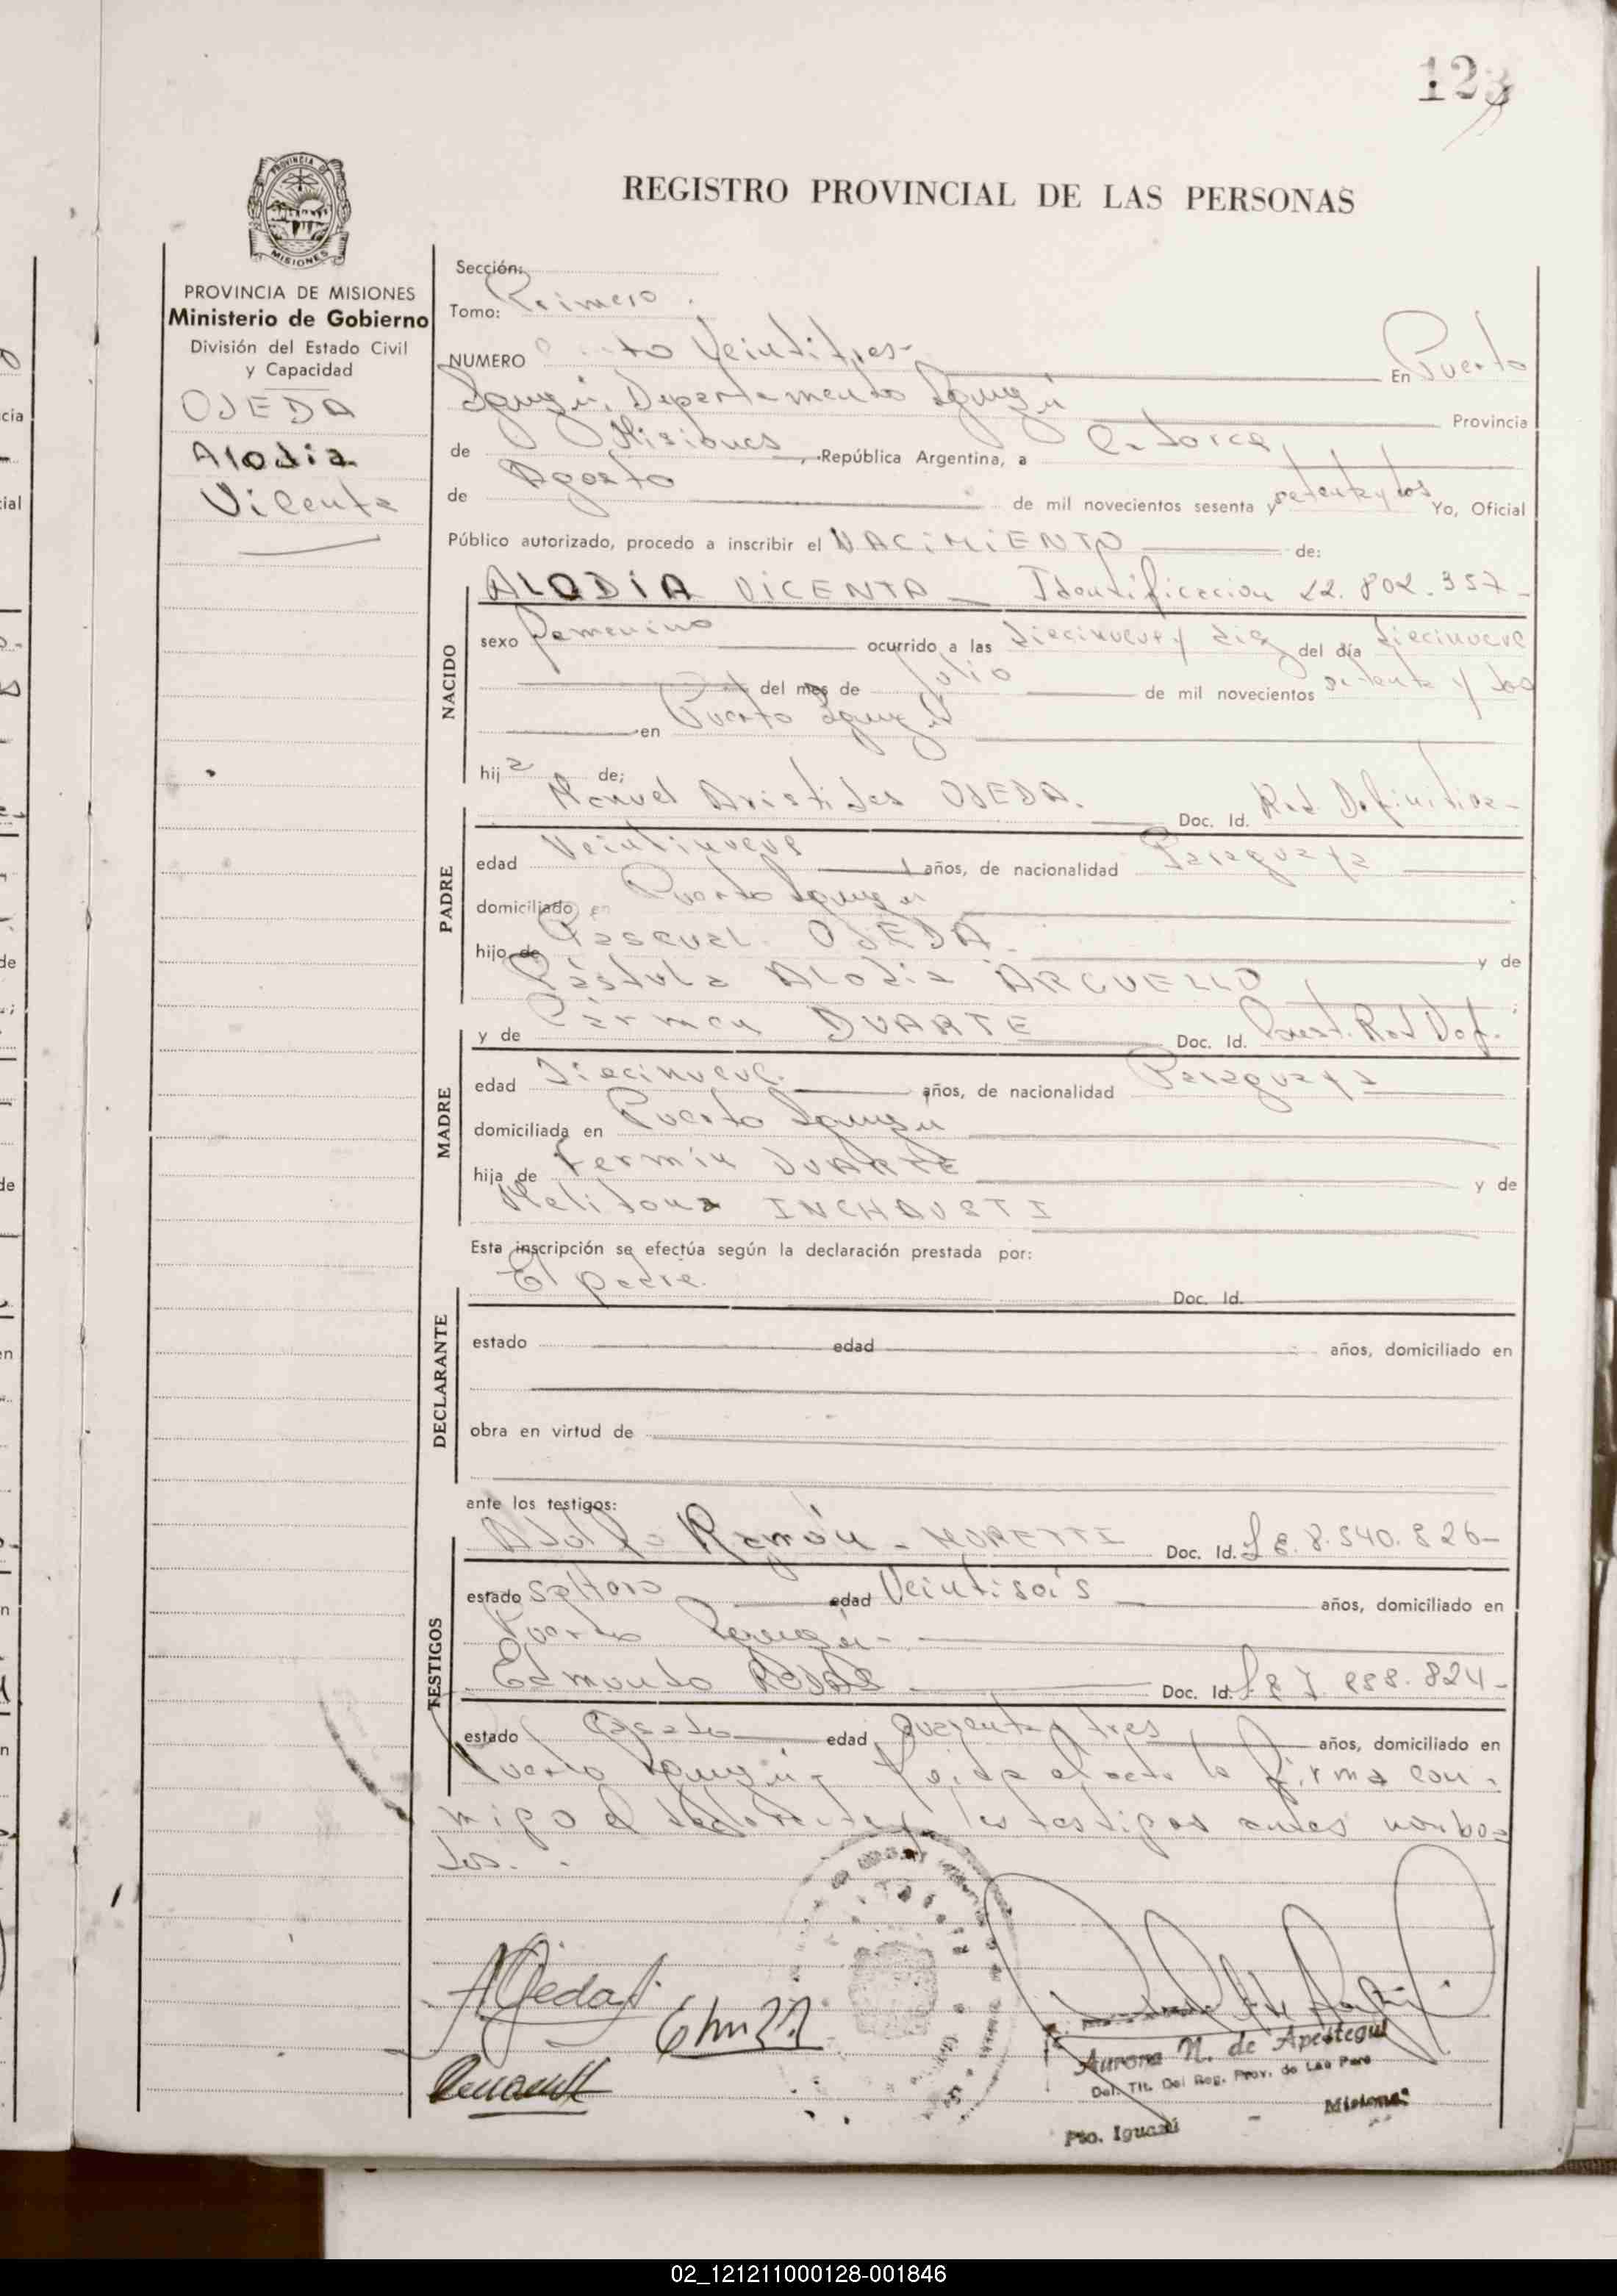 123
PROVINCIA DE
MISIONES
REGISTRO PROVINCIAL DE LAS PERSONAS
PROVINCIA DE MISIONES
Ministerio de Gobierno
División del Estado Civil
y Capacidad
OJEDA
Alodia
Vicenta
Sección:
Tomo: Primero.
NUMERO Veintitres- En Puerto
Iguazú, Departamento Iguazú Provincia
de Misiones, República Argentina, a Catorce
de Agosto de mil novecientos sesenta y setenta y dos Yo, Oficial
Público autorizado, procedo a inscribir el NACIMIENTO de:
NACIDO
ALODIA VICENTA - Identificacion 22.802.357-
sexo femenino ocurrido a las diecinueve y diez del día diecinueve
del mes de Julio de mil novecientos setenta y dos
en Puerto Iguazú
hija de;
PADRE
Manuel Aristides OJEDA. Doc. Id. Rad. Definitiva-
edad Veintinueve años, de nacionalidad Paraguaya
domiciliado en Puerto Iguazú
hijo de Pascual OJEDA y de
Pástula Alodia ARGUELLO
MADRE
y de Cármen DUARTE Doc. Id. Rad Def.
edad Diecinueve. años, de nacionalidad Paraguaya
domiciliada en Puerto Iguazú
hija de Fermin DUARTE y de
Melitona INCHAUSTI
Esta inscripción se efectúa según la declaración prestada por:
DECLARANTE
El padre. Doc. Id.
estado edad años, domiciliado en
obra en virtud de
ante los testigos:
TESTIGOS
Adolfo Ramón - MORETTI Doc. Id. 8.540.826-
estado soltero edad Veintiseis años, domiciliado en
Puerto Iguazú-
Edmundo ROJAS Doc. Id. 824-
estado Casado edad cuarenta y tres años, domiciliado en
Puerto Iguazú- Leida el acta la firma con-
migo el declarante y los testigos antes nombra
dos.-
AOjeda
Aurora N. de Apestegui
Del. Tit. Del Reg. Prov. de Las Pers
Pto. Iguazú - Misiones
02_121211000128-001846